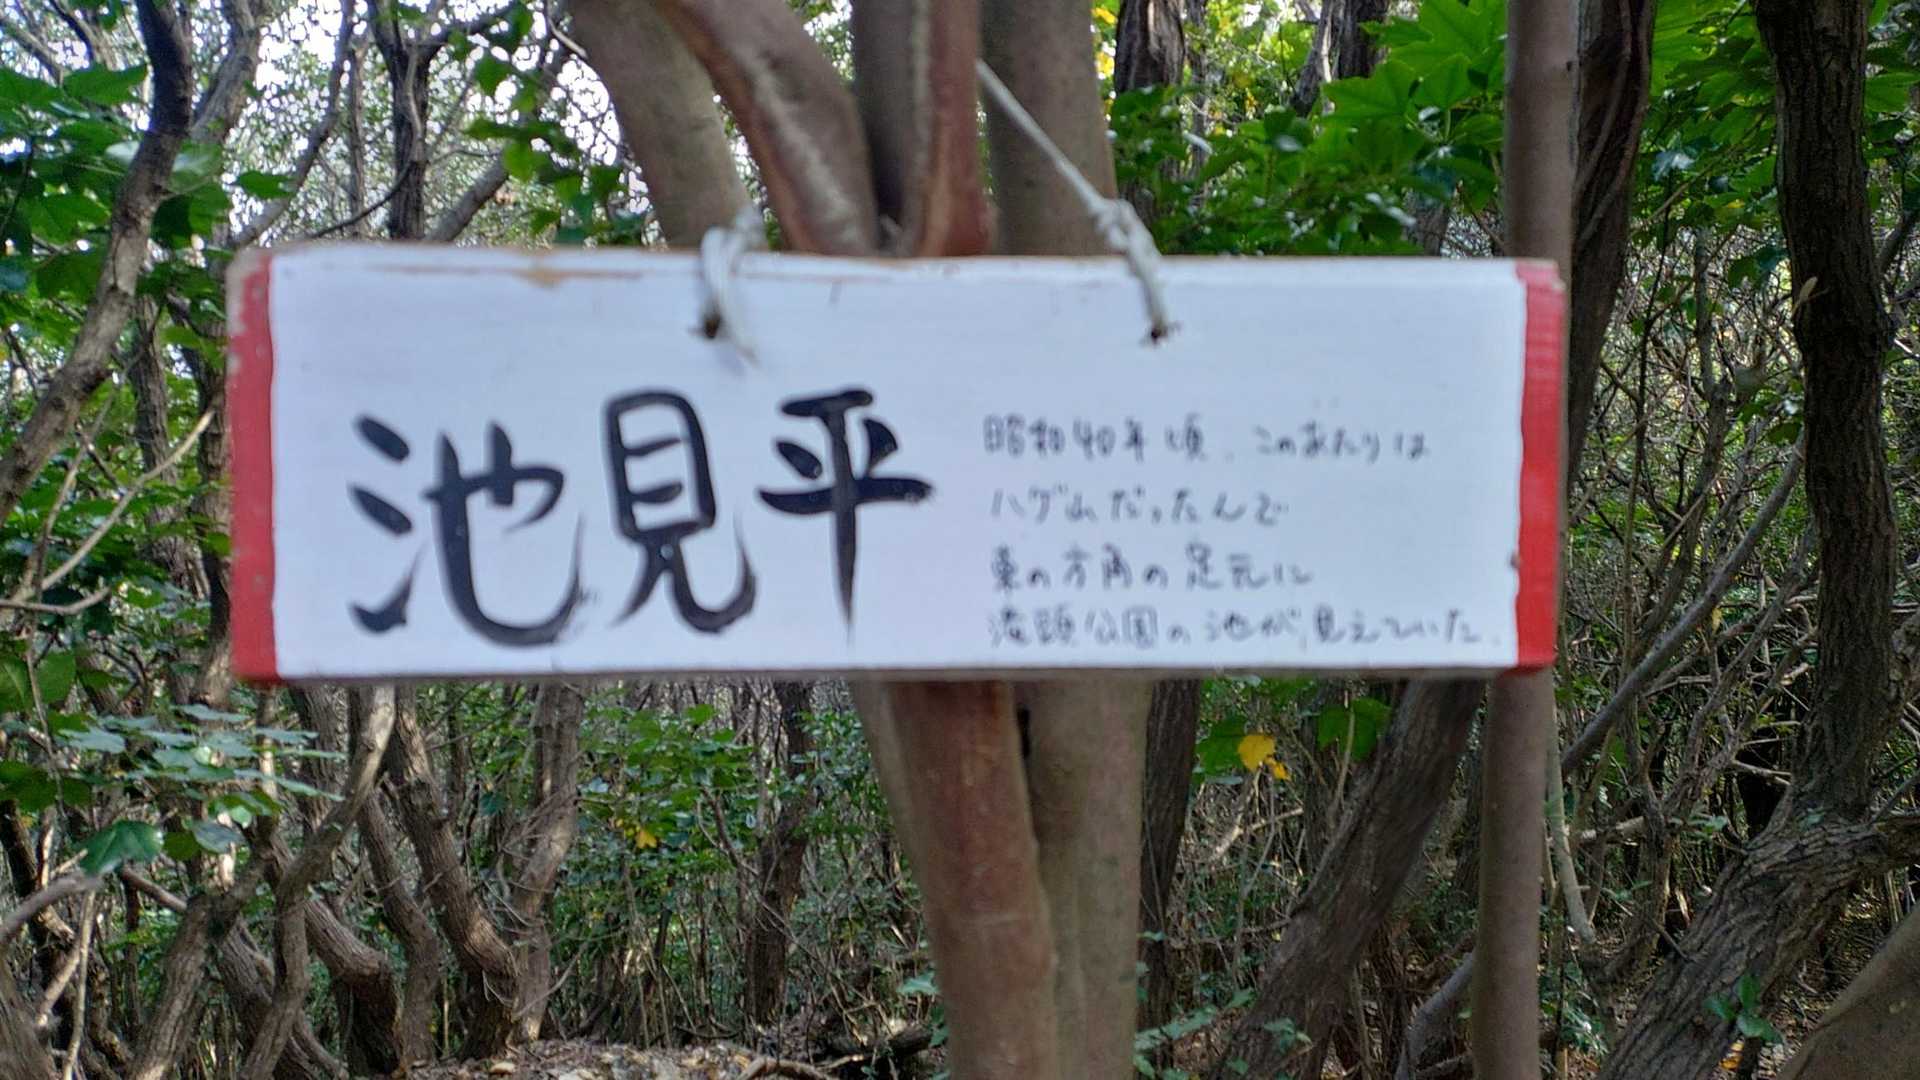 池見平
昭和40年頃、このあたりは
ハゲ山だったんで
東の方角の足元に
公園の池が、見えていた。